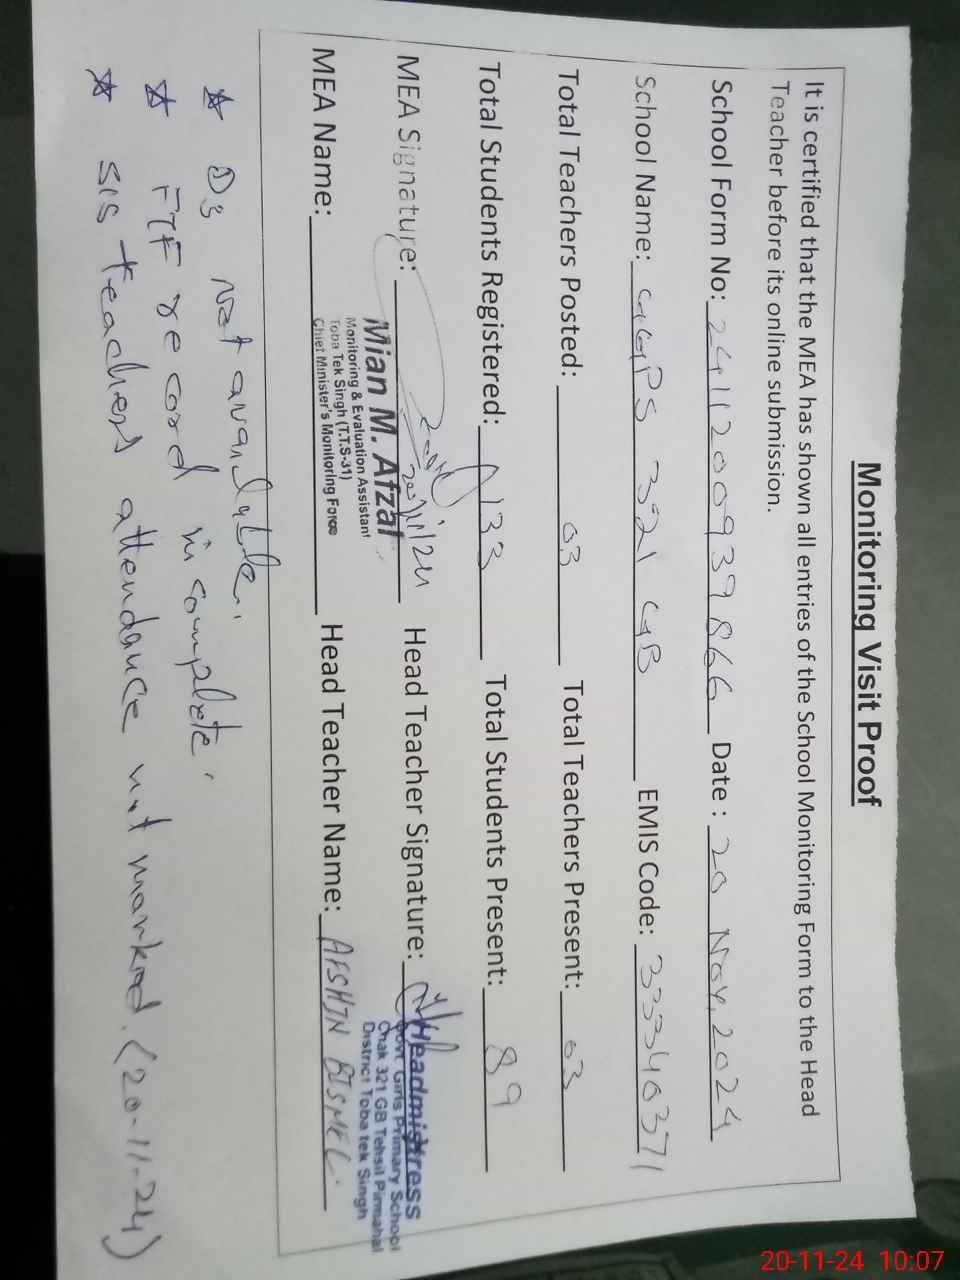 Monitoring Visit Proof
It is certified that the MEA has shown all entries of the School Monitoring Form to the Head
Teacher before its online submission.
School Form No: 2411200939866 Date : 20 Nov, 2024
School Name: GGPS 321 GB EMIS Code: 33340371
Total Teachers Posted: 03 Total Teachers Present: 03
Total Students Registered: 133 Total Students Present: 89
MEA Signature: 20/11/24 Head Teacher Signature:
Mian M. Afzal
Monitoring & Evaluation Assistant
Toba Tek Singh (T.T.S-31)
Chief Minister's Monitoring Force
Headmistress
Govt. Girls Primary School
Chak 321 GB Tehsil Pirmahal
District Toba tek Singh
MEA Name: Head Teacher Name: AFSHIN
☆ Ds not available.
☆ FTF record incomplete.
☆ SIS teachers attendance not marked. (20-11-24)
20-11-24 10:07